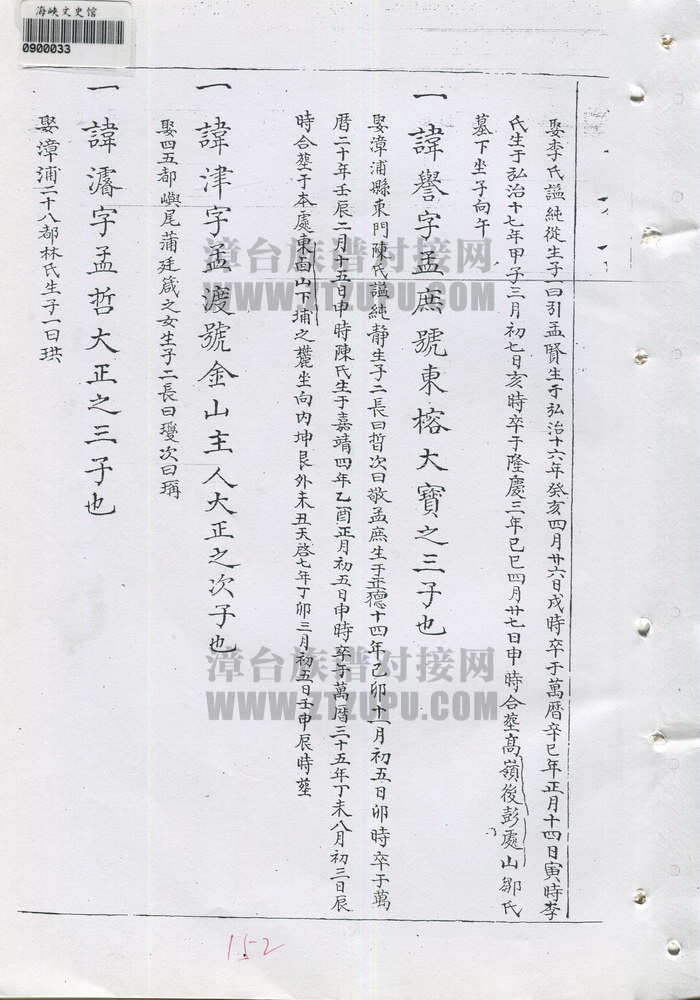 海峡文史馆
0900033
娶李氏謚純従生子一曰引孟賢生于弘治十六年癸亥四月廿六日戌時卒于萬曆辛巳年正月十四日寅時李
氏生于弘治十七年甲子三月初七日亥時卒于隆慶三年己巳四月廿七日申時合塟高嶺後彭處山鄒氏
墓下坐子向午
一諱譽字孟庶號東榕大寶之三子也
娶漳浦縣東門陳氏謚純静生子二長曰哲次曰敬孟庶生于正德十四年己卯十一月初五日卯時卒于萬
曆二十年壬辰二月十五日申時陳氏生于嘉靖四年乙酉正月初五日申時卒于萬曆三十五年丁未八月初三日辰
時合塟于本處東面山下埔之麓坐向内坤艮外未丑天啓七年丁卯三月初五日壬申辰時塟
一諱津字孟渡號金山主人大正之次子也
娶四五都嶼尾蒲廷箴之女生子二長曰璦次曰㻞
一諱濬字孟哲大正之三子也
娶漳浦二十八都林氏生子一曰珙
漳台族谱对接网
WWW.ZTZUPU.COM
漳台族谱对接网
WWW.ZTZUPU.COM
152